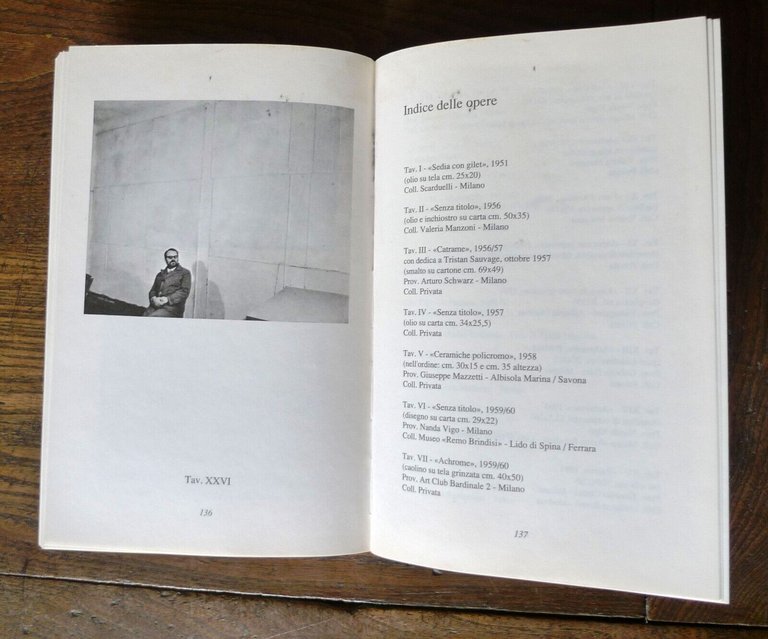 Tav. XXVI
136
Indice delle opere
Tav. I - «Sedia con gilet», 1951
(olio su tela cm. 25x20)
Coll. Scarduelli - Milano
Tav. II - «Senza titolo», 1956
(olio e inchiostro su carta cm. 50x35)
Coll. Valeria Manzoni - Milano
Tav. III - «Catrame», 1956/57
con dedica a Tristan Sauvage, ottobre 1957
(smalto su cartone cm. 69x49)
Prov. Arturo Schwarz - Milano
Coll. Privata
Tav. IV - «Senza titolo», 1957
(olio su carta cm. 34x25,5)
Coll. Privata
Tav. V - «Ceramiche policromo», 1958
(nell'ordine: cm. 30x15 e cm. 35 altezza)
Prov. Giuseppe Mazzetti - Albisola Marina / Savona
Coll. Privata
Tav. VI - «Senza titolo», 1959/60
(disegno su carta cm. 29x22)
Prov. Nanda Vigo - Milano
Coll. Museo «Remo Brindisi» - Lido di Spina / Ferrara
Tav. VII - «Achrome», 1959/60
(caolino su tela grinzata cm. 40x50)
Prov. Art Club Bardinale 2 - Milano
Coll. Privata
137